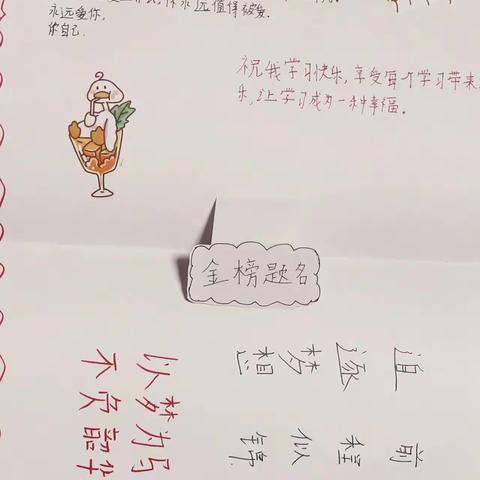 你永远值得被爱.
永远爱你,
你自己.
祝我学习快乐,享受每个学习带来
乐,让学习成为一种幸福。
金榜题名
追逐梦想
前程似锦
以梦为马
不负韶华